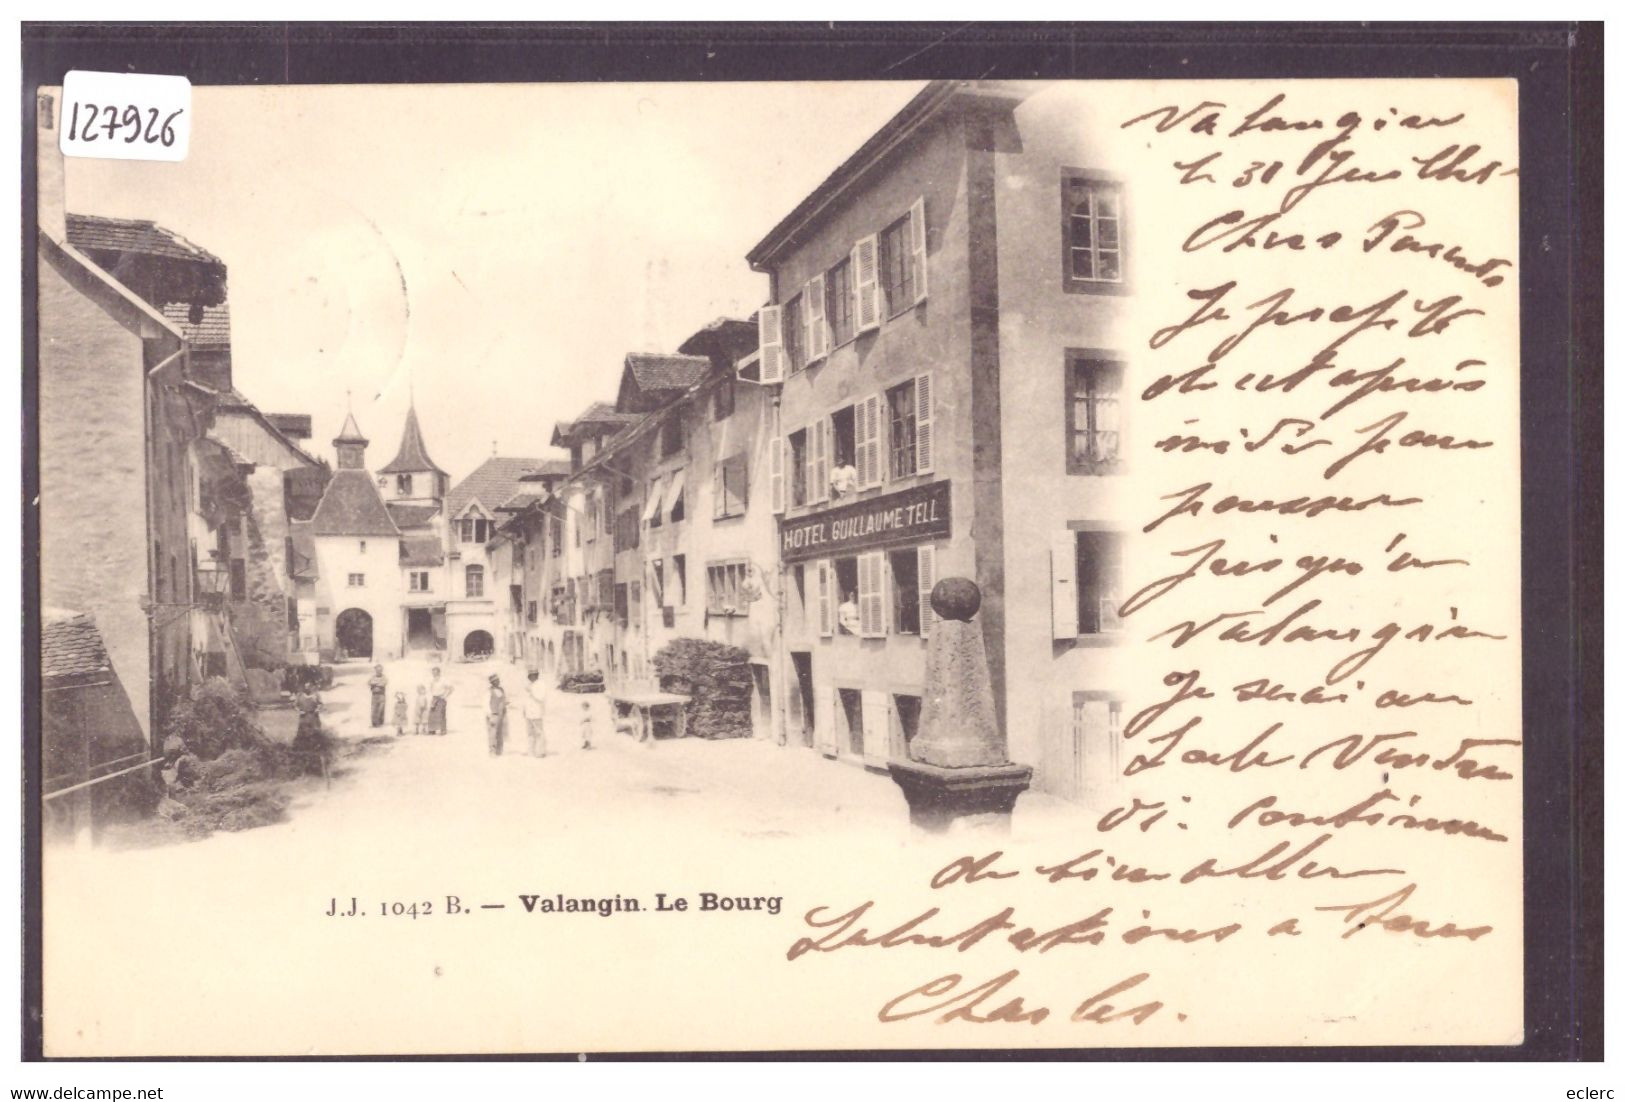 127926
HOTEL GUILLAUME TELL
Valangin
le 31 Juillet
Chers Parents
Je profite
de cet après
midi pour
pousser
jusqu'à
Valangin
Je serai au
Locle Vendre
di. Continue
de bien aller
Salutations a tous
Charles.
J.J. 1042 B. — Valangin. Le Bourg
eclerc